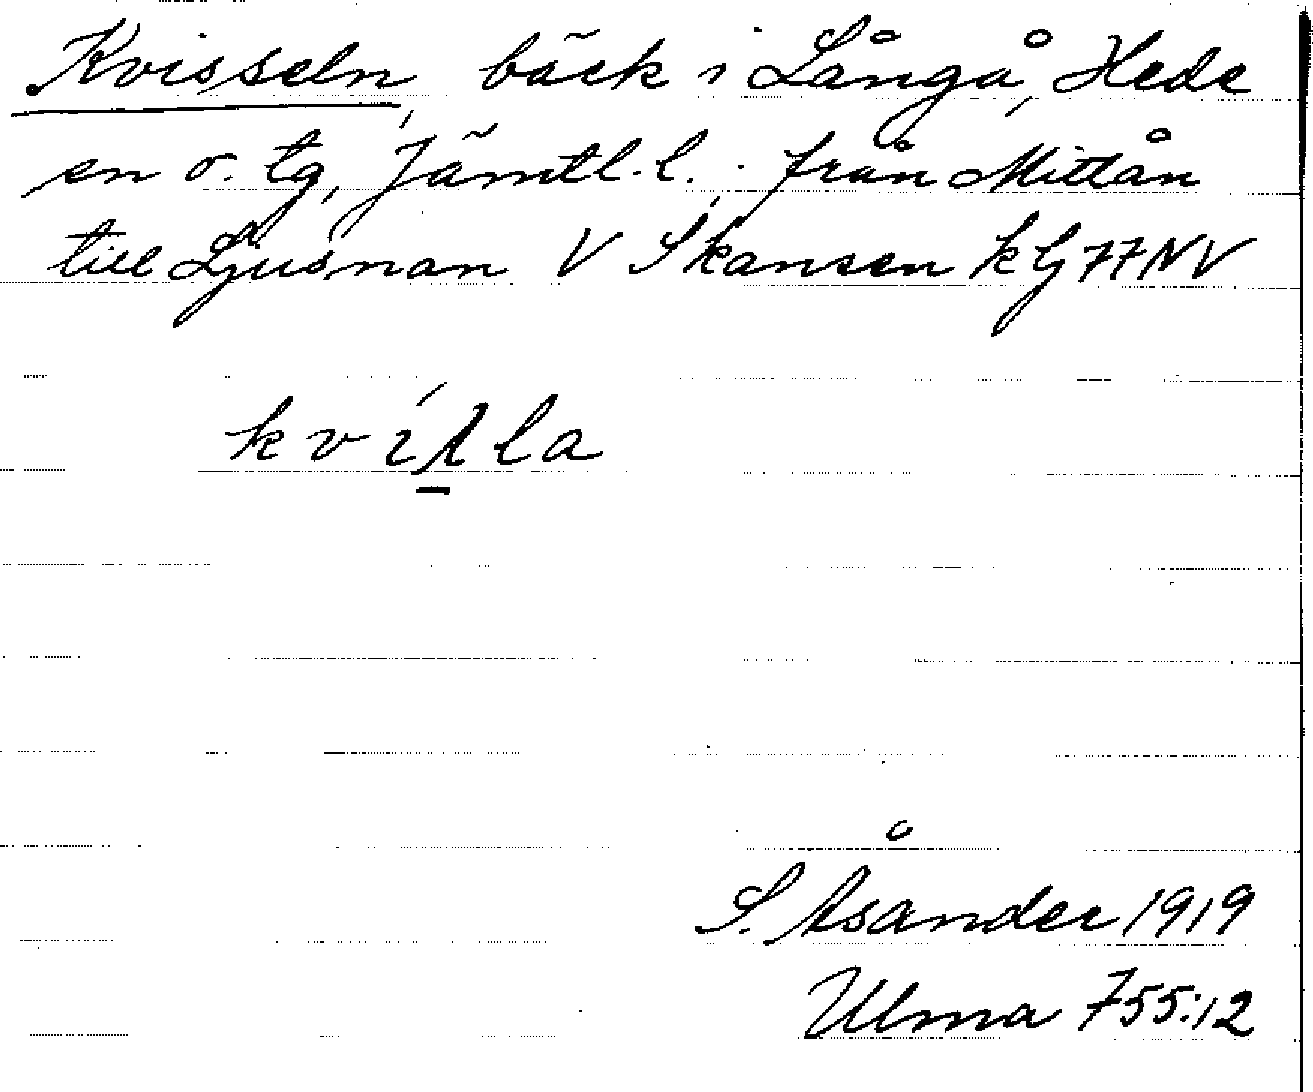 Kvisseln, bäck i Långå, Hede
sn o. tg, Jämtl. l., från Mittån
till Ljusnan V Skansen kLj 77 NV
S. Åsander 1919
Ulma 755:12